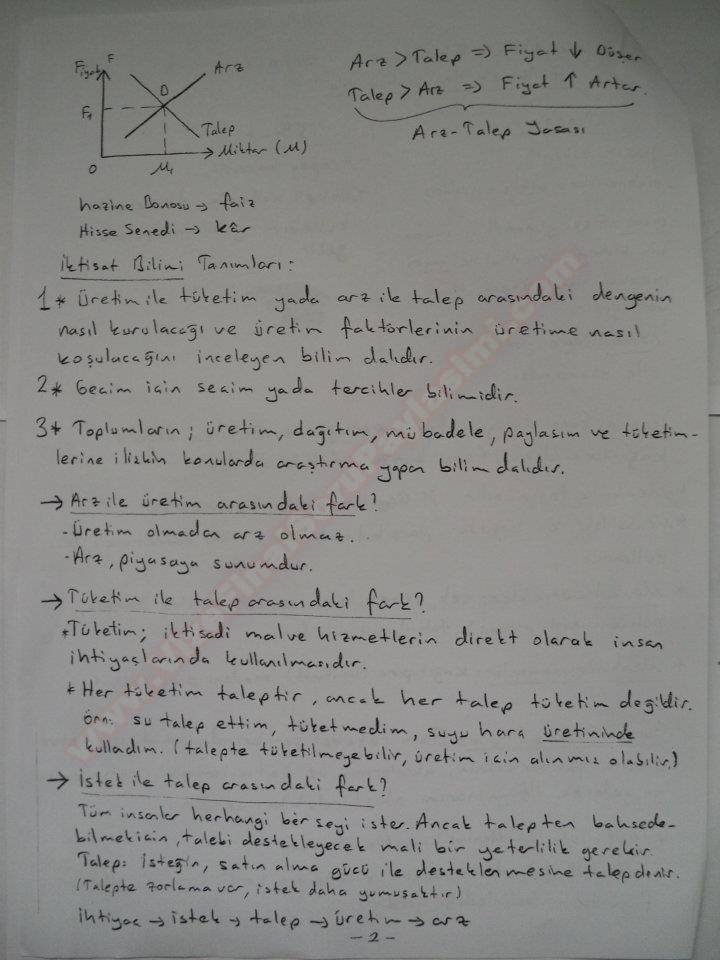 Fiyat F
Arz
D
F1
Talep
0
M1
Miktar (M)
Arz > Talep => Fiyat ↓ Düşer
Talep > Arz => Fiyat ↑ Artar.
Arz-Talep Yasası
hazine Bonosu → faiz
Hisse Senedi → kâr
İktisat Bilimi Tanımları:
1* Üretim ile tüketim yada arz ile talep arasındaki dengenin
nasıl kurulacağı ve üretim faktörlerinin üretime nasıl
koşulacağını inceleyen bilim dalıdır.
2* Geçim için seçim yada tercihler bilimidir.
3* Toplumların; üretim, dağıtım, mübadele, paylaşım ve tüketim-
lerine ilişkin konularda araştırma yapan bilim dalıdır.
→ Arz ile üretim arasındaki fark?
-Üretim olmadan arz olmaz.
-Arz, piyasaya sunumdur.
→ Tüketim ile talep arasındaki fark?
*Tüketim; iktisadi mal ve hizmetlerin direkt olarak insan
ihtiyaçlarında kullanılmasıdır.
* Her tüketim taleptir, ancak her talep tüketim değildir.
Örn: su talep ettim, tüketmedim, suyu harç üretiminde
kulladım. (talepte tüketilmeyebilir, üretim için alınmış olabilir.)
→ İstek ile talep arasındaki fark?
Tüm insanlar herhangi bir şeyi ister. Ancak talepten bahsede-
bilmek için, talebi destekleyecek mali bir yeterlilik gerekir.
Talep: isteğin, satın alma gücü ile desteklenmesine talep denir.
(Talepte zorlama var, istek daha yumuşaktır)
İhtiyaç → istek → talep → üretim → arz
- 2 -